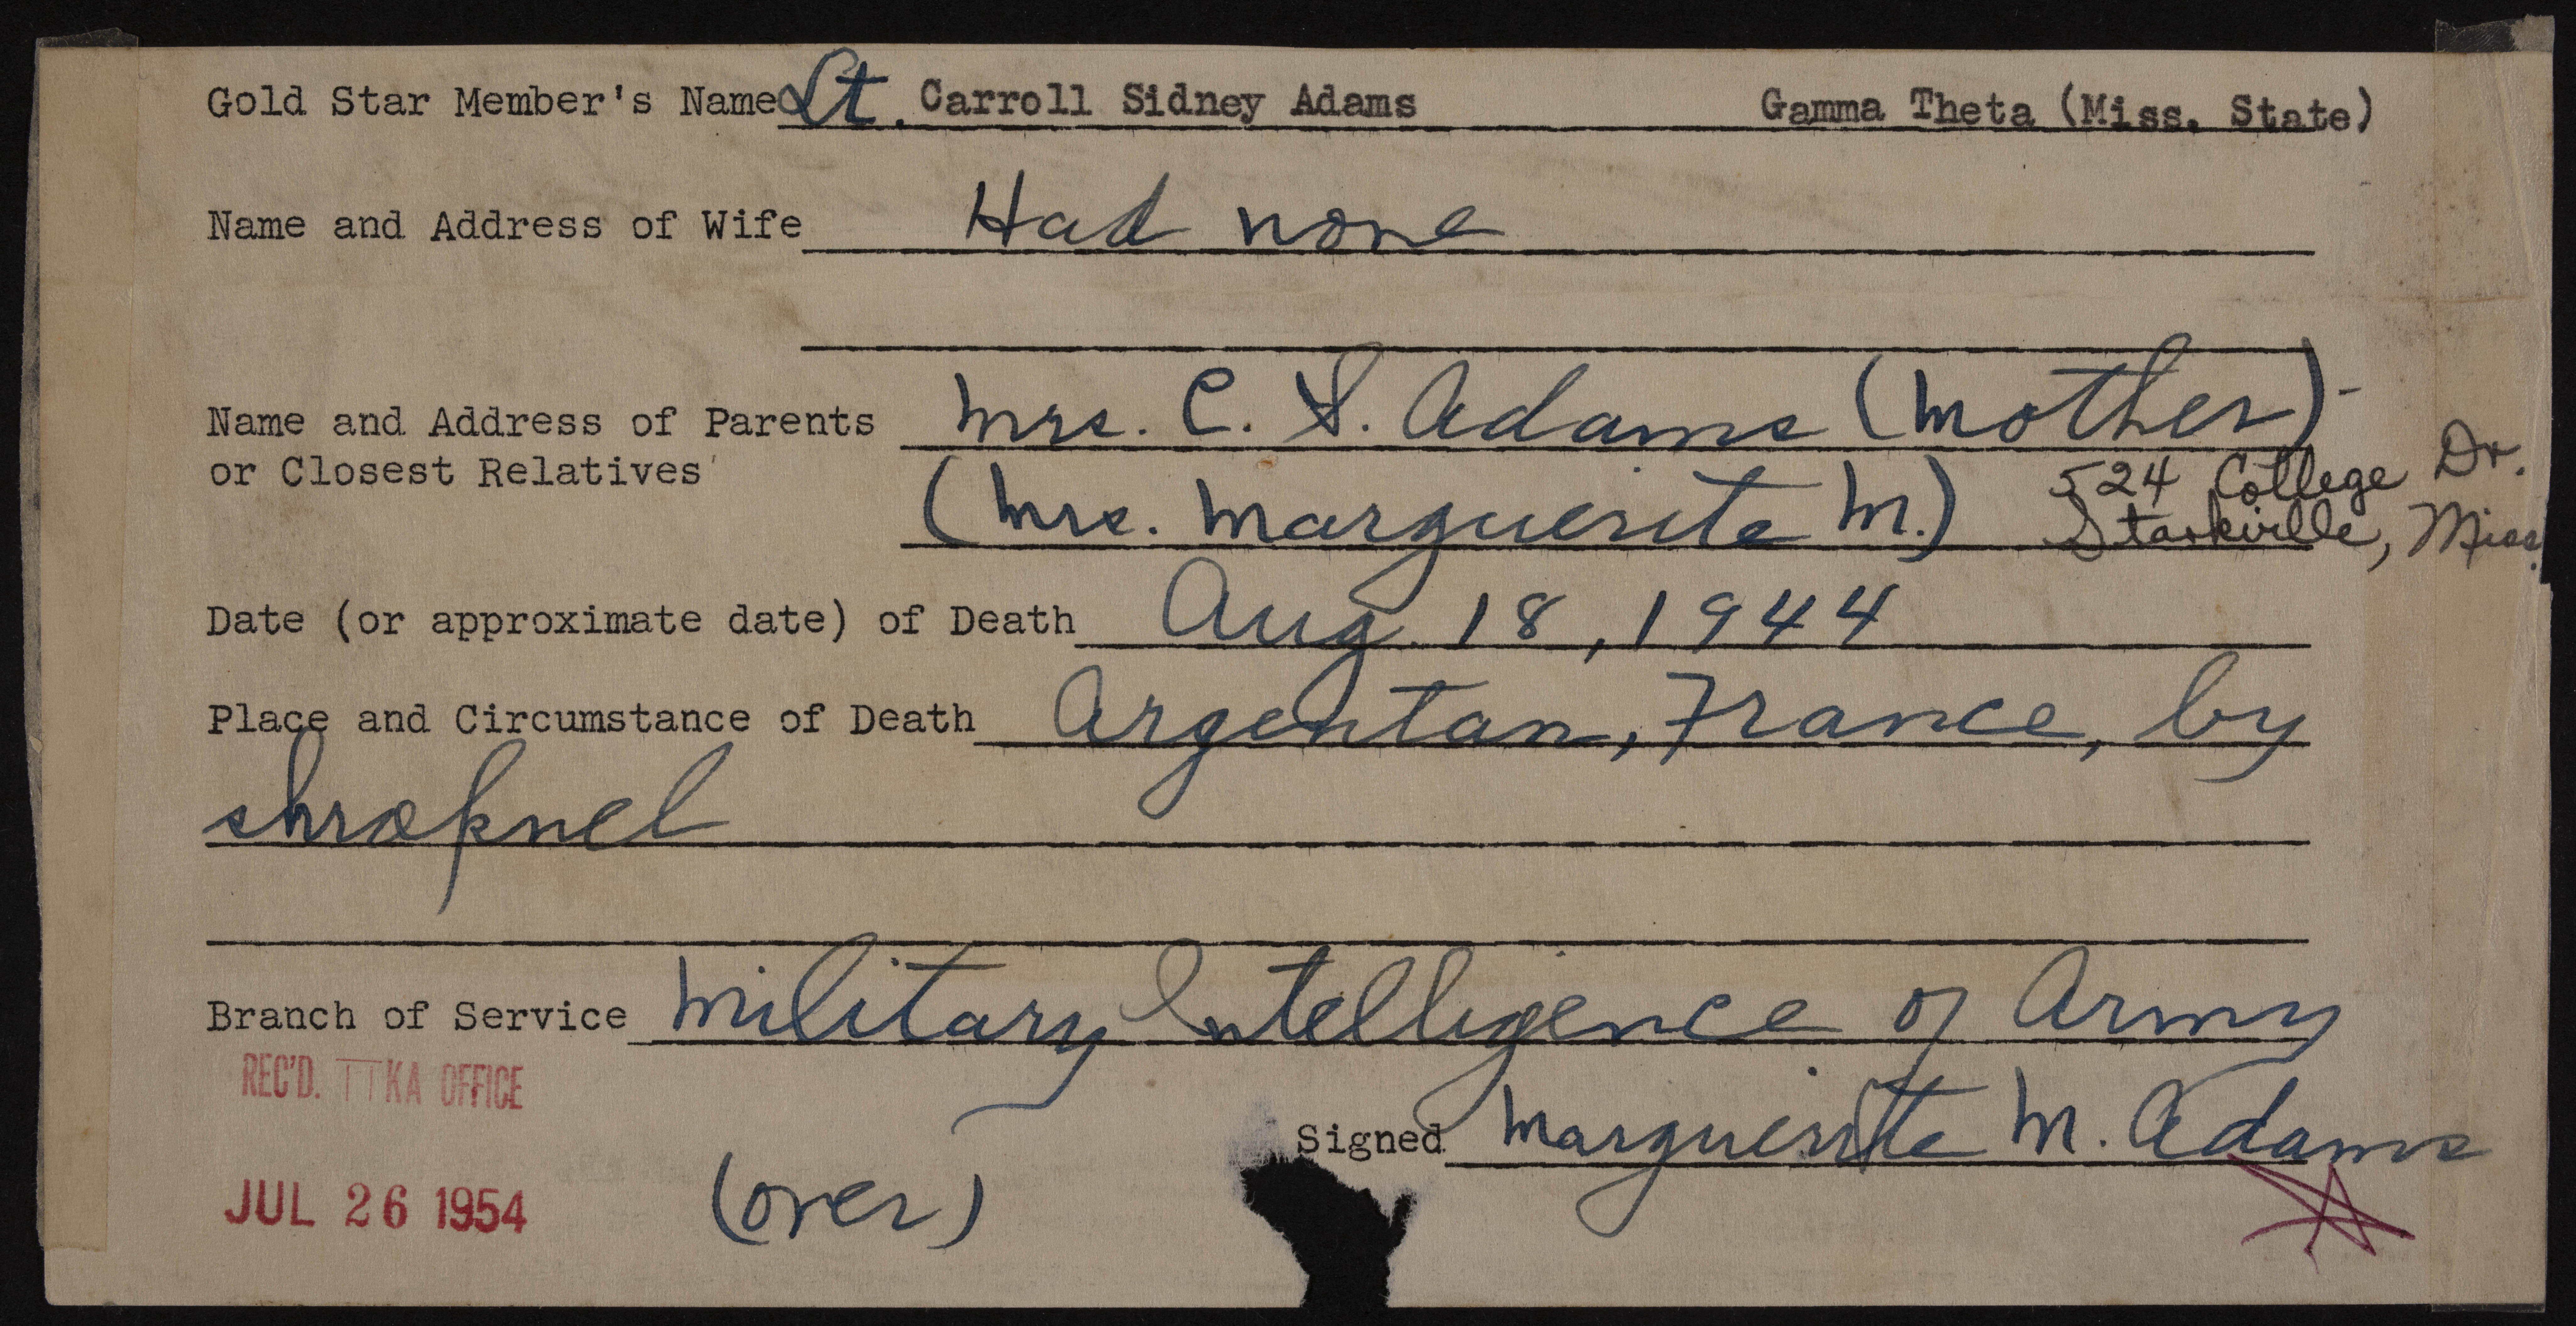 Gold Star Member's Name Lt. Carroll Sidney Adams Gamma Theta (Miss. State)
Name and Address of Wife Had none
Name and Address of Parents Mrs. C. S. Adams (Mother)-
or Closest Relatives (Mrs. Marguerite M.) 524 College Dr.
Starkville, Miss.
Date (or approximate date) of Death Aug. 18, 1944
Place and Circumstance of Death Argentan, France, by
shrapnel
Branch of Service Military Intelligence of Army
REC'D. ΠKA OFFICE
Signed Marguerite M. Adams
JUL 26 1954 (over)